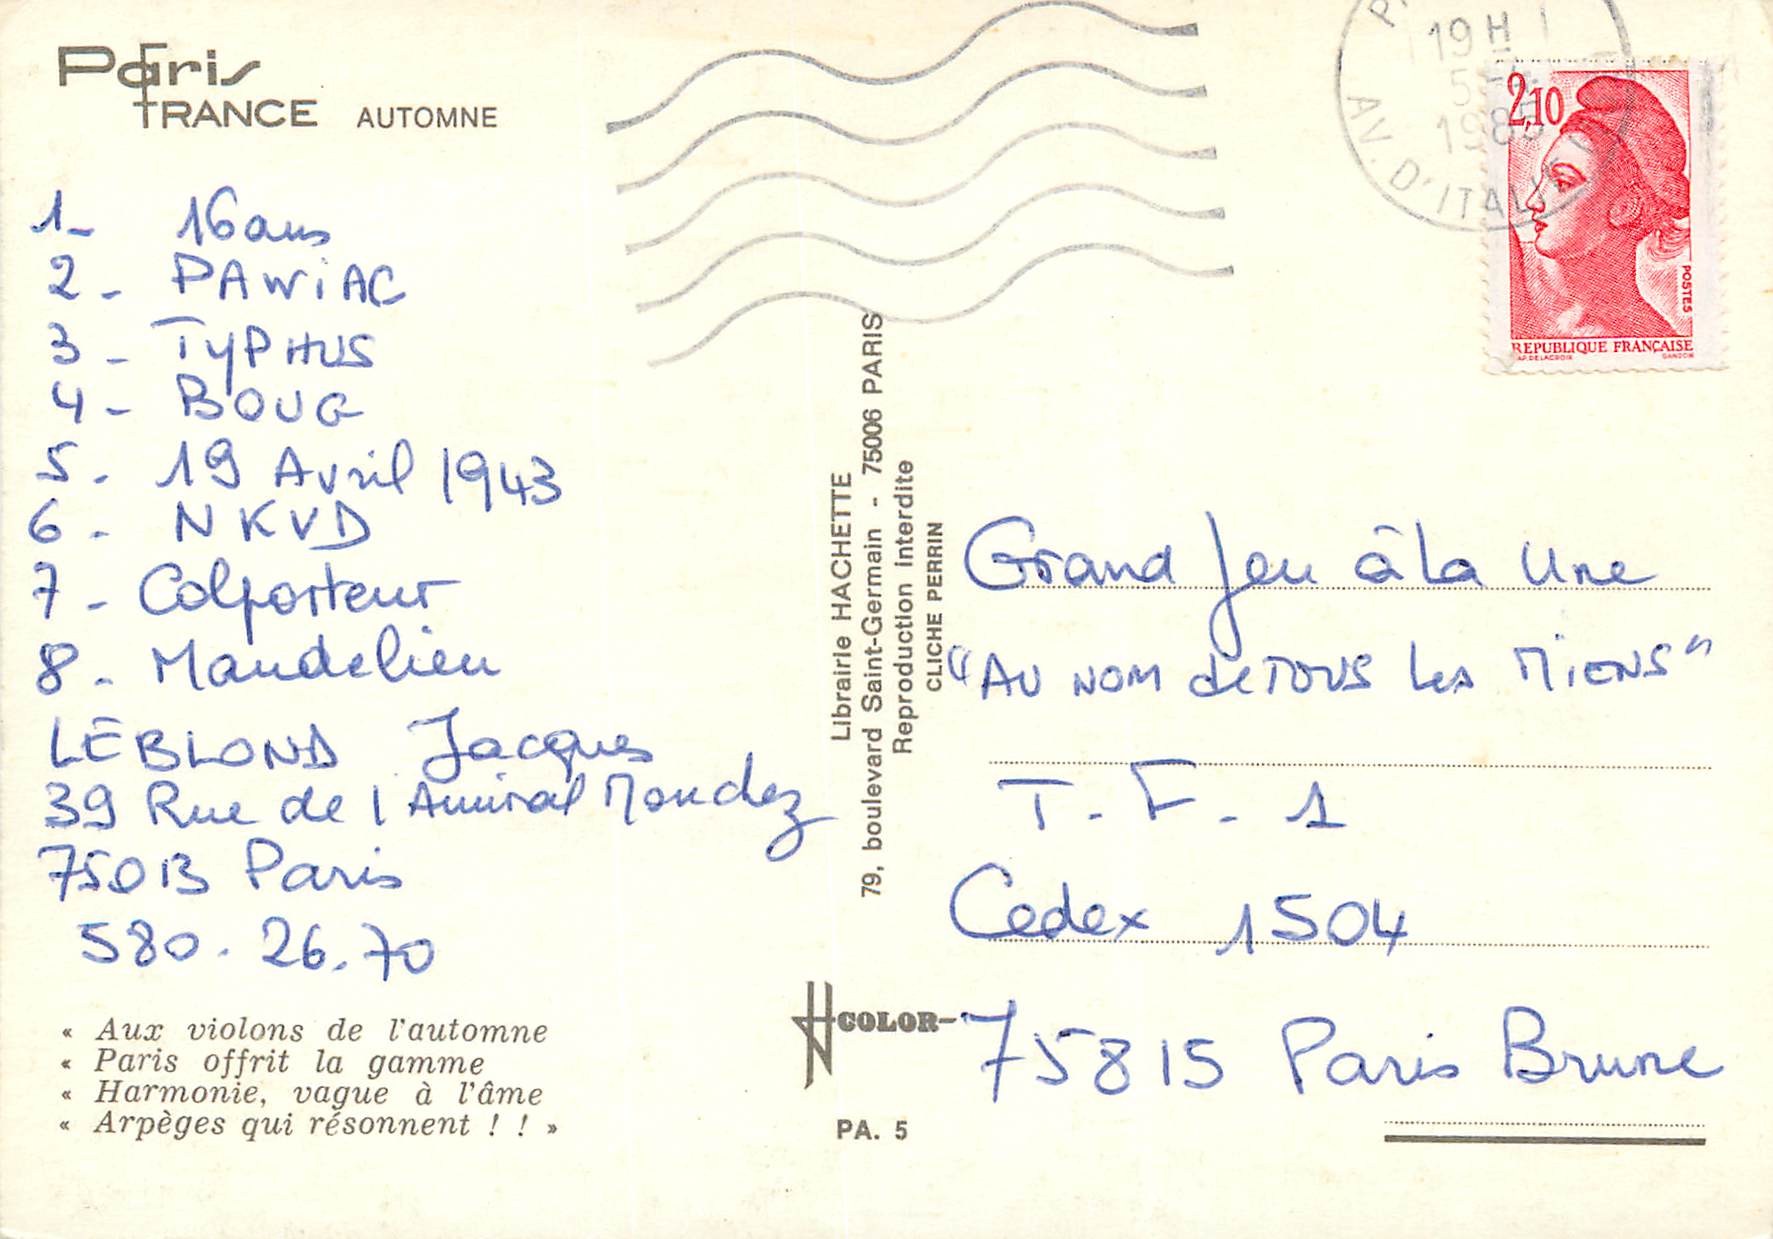 Paris
FRANCE AUTOMNE
1- 16 ans
2- PAWIAC
3- TYPHUS
4- BOUG
5- 19 Avril 1943
6- NKVD
7- Colporteur
8- Mandelieu
LEBLOND Jacques
39 Rue de l Amiral Mouchez
75013 Paris
580.26.70
« Aux violons de l'automne
« Paris offrit la gamme
« Harmonie, vague à l'âme
« Arpèges qui résonnent ! ! »
Librairie HACHETTE
79, boulevard Saint-Germain - 75006 PARIS
Reproduction interdite
CLICHE PERRIN
COLOR
PA. 5
19H
AV. D'ITALIE
2,10
POSTES
REPUBLIQUE FRANÇAISE
AP. DELACROIX GANDON
Grand Jeu à la Une
"AU NOM de TOUS les MIENS"
T.F.1
Cedex 1504
75815 Paris Brune